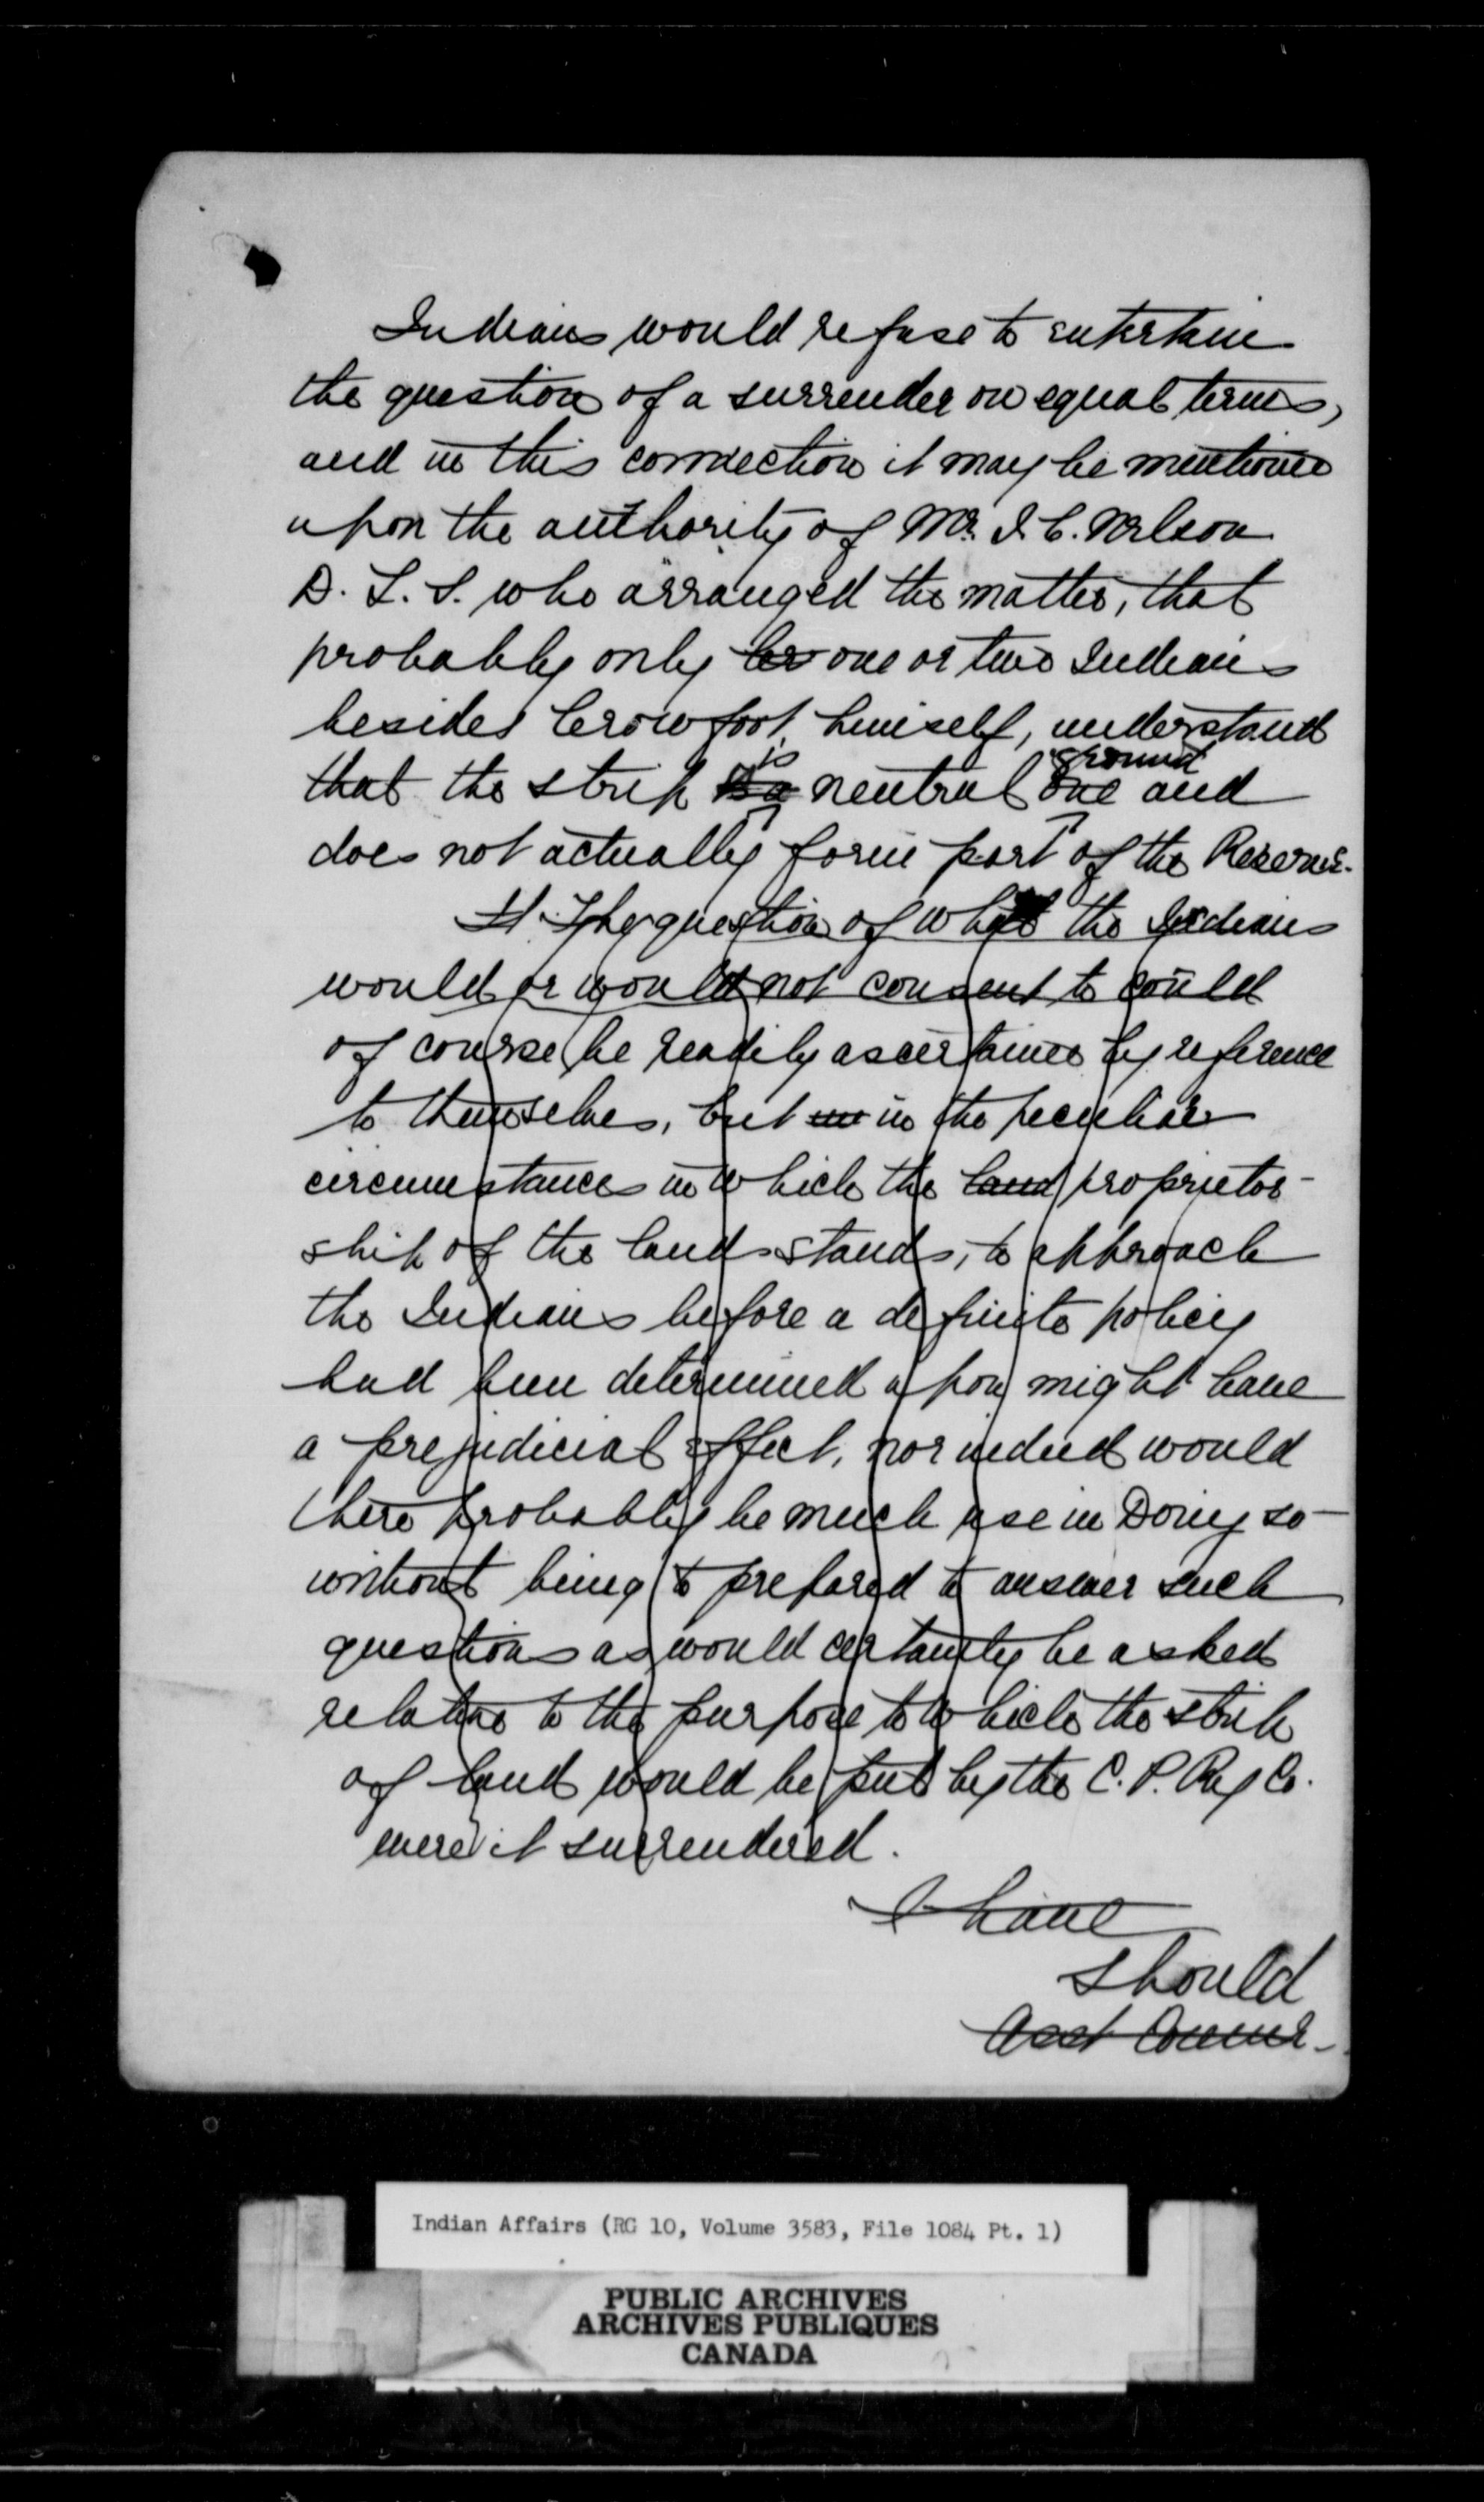 Indians would refuse to entertain
the question of a surrender on equal terms,
and in this connection it may be mentioned
upon the authority of Mr. J. C. Nelson
D. L. S. who arranged the matter, that
probably only one or two Indians
besides Crowfoot himself, understand
is ground
that the strip is a neutral one and
does not actually form part of the Reserve.
The question of what the Indians
would or would not consent to could
of course be readily ascertained by reference
to themselves, but in the peculiar
circumstances in which the land proprietor-
ship of the land stands, to approach
the Indians before a definite policy
had been determined upon might have
a prejudicial effect, nor indeed would
there probably be much use in Doing so
without being to prepared to answer such
questions as would certainly be asked
relative to the purpose to which the strip
of land would be put by the C. P. Ry Co.
were it surrendered.
I have
should
Asst Commr.
Indian Affairs (RG 10, Volume 3583, File 1084 Pt. 1)
PUBLIC ARCHIVES
ARCHIVES PUBLIQUES
CANADA